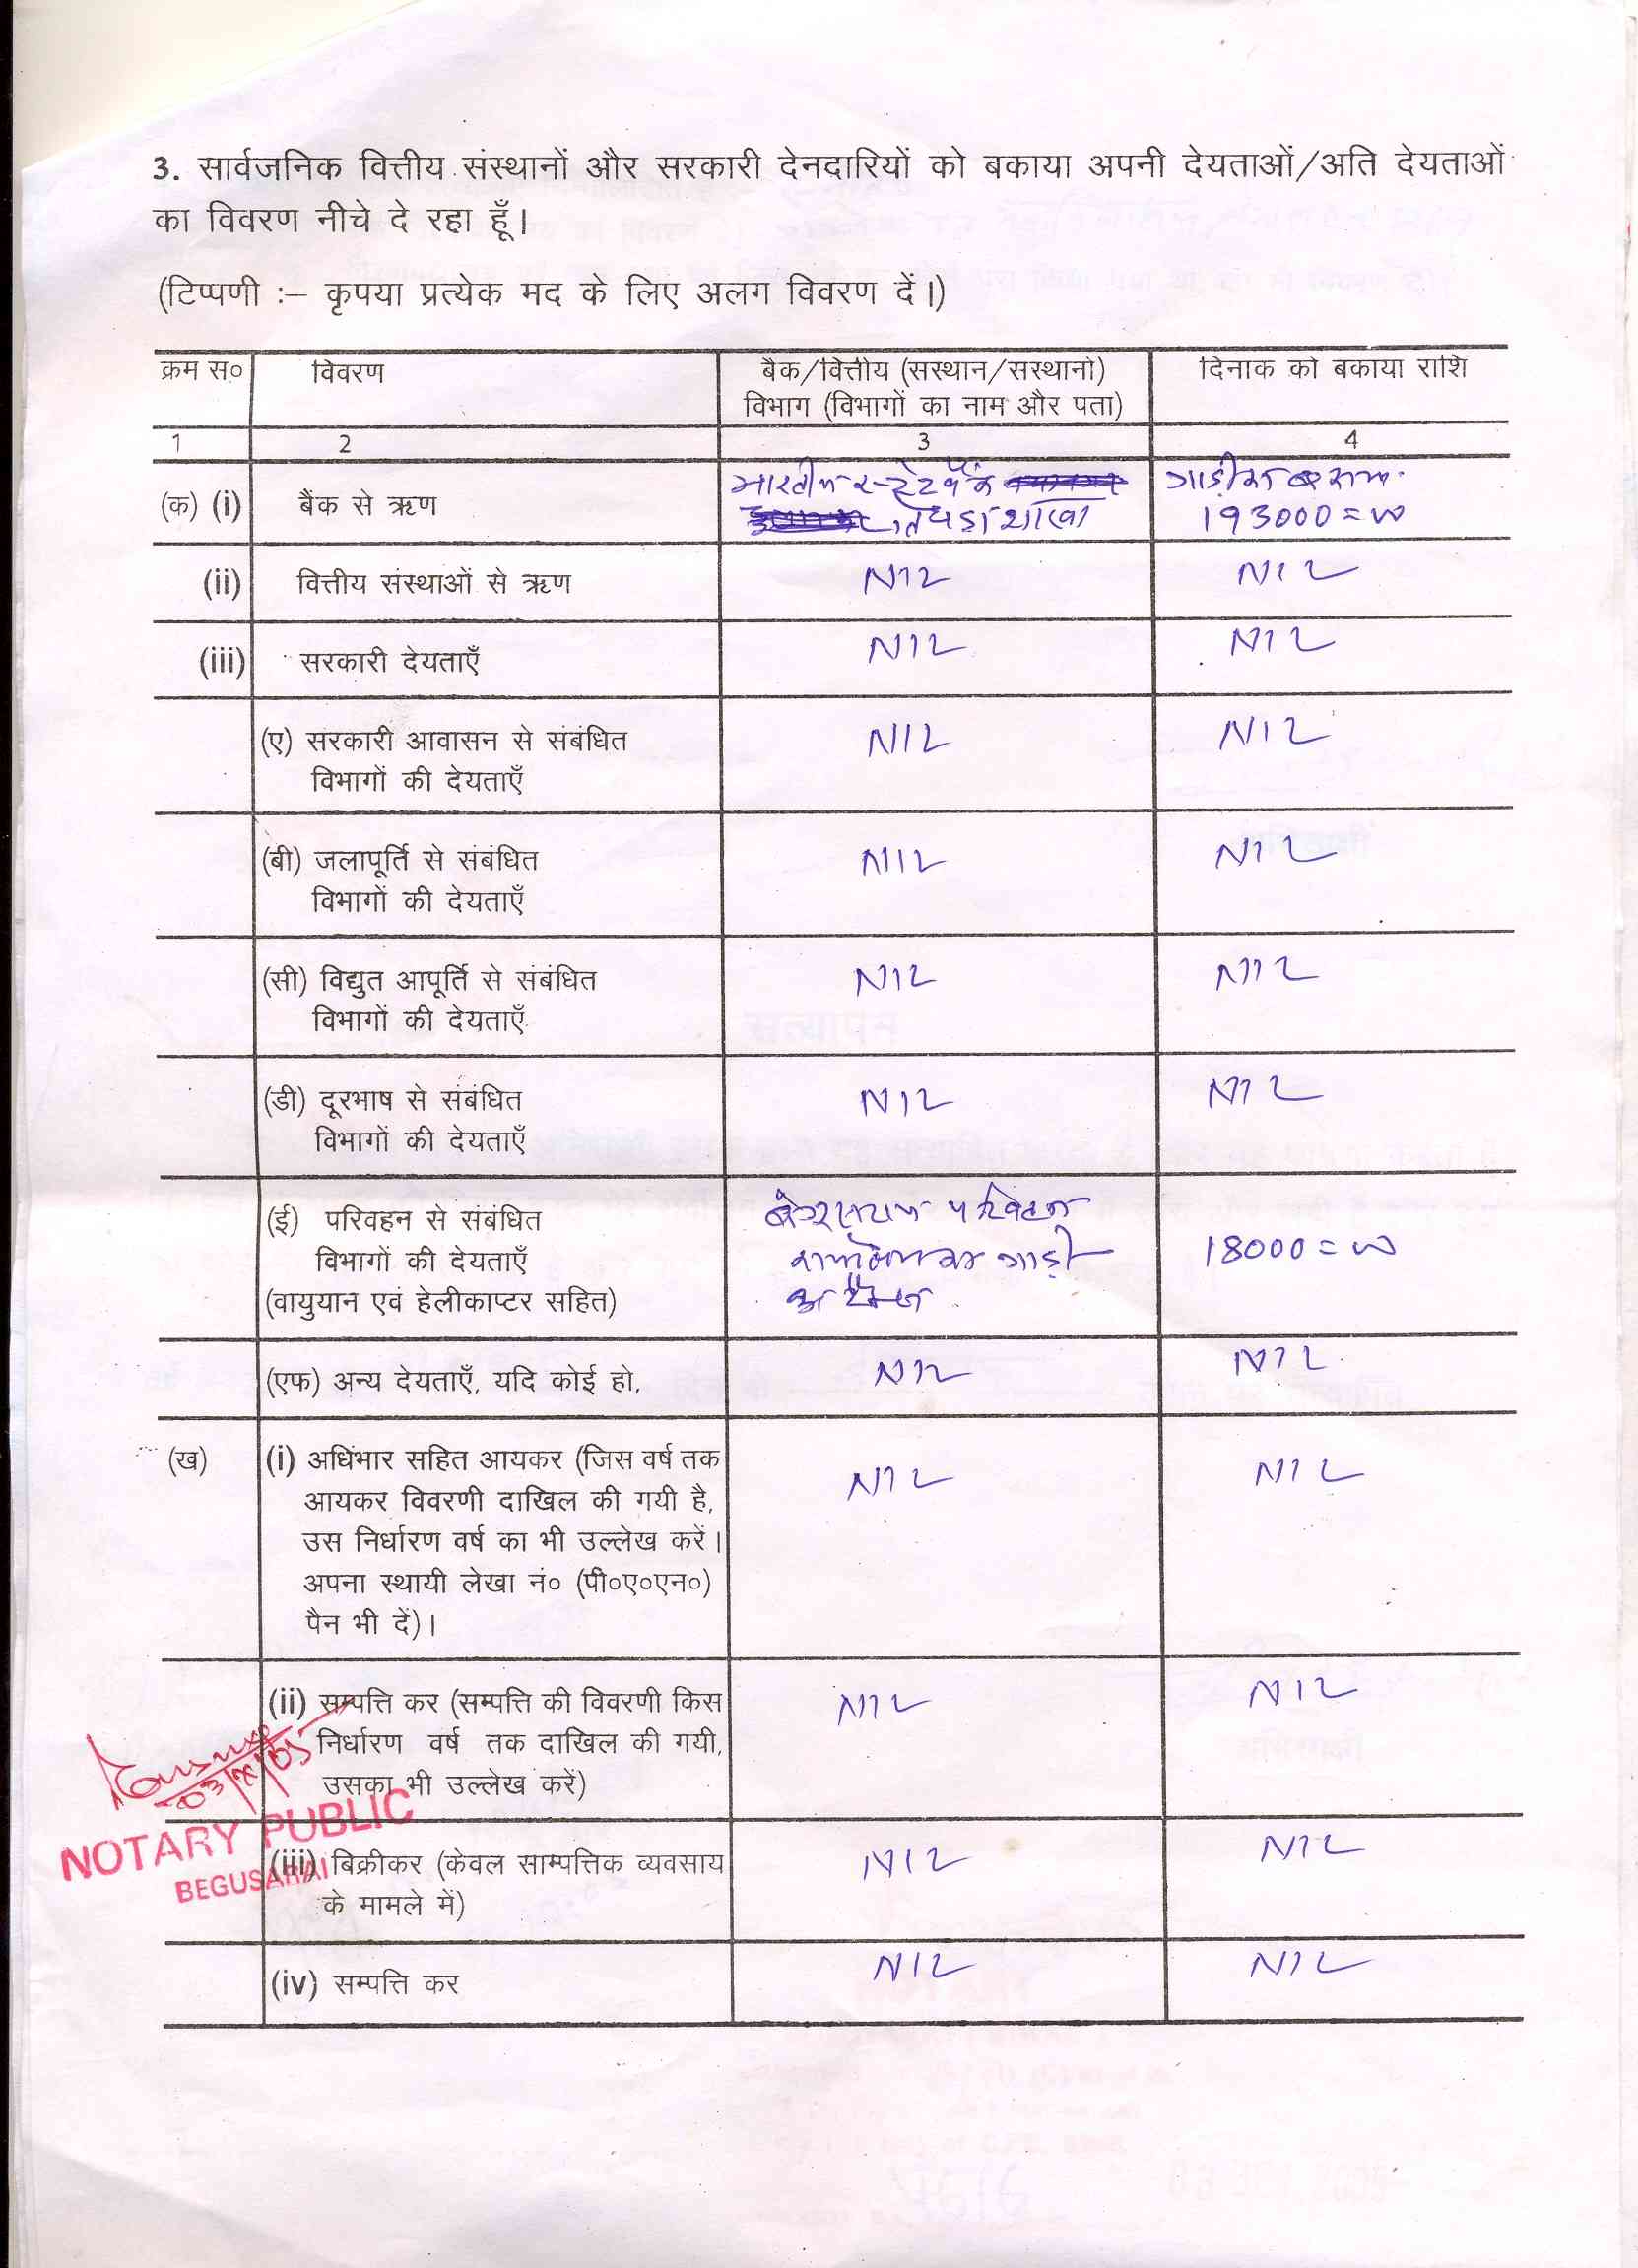 3. सार्वजनिक वित्तीय संस्थानों और सरकारी देनदारियों को बकाया अपनी देयताओं/अति देयताओं
का विवरण नीचे दे रहा हूँ।
(टिप्पणी :– कृपया प्रत्येक मद के लिए अलग विवरण दें।)
क्रम स० विवरण बैक/वित्तीय (सस्थान/सस्थानो) दिनाक को बकाया राशि
विभाग (विभागों का नाम और पता)
1 2 3 4
भारतीय स्टेट बैंक गाड़ी का
(क) (i) बैंक से ऋण शाखा 193000=00
(ii) वित्तीय संस्थाओं से ऋण NIL NIL
(iii) सरकारी देयताएँ NIL NIL
(ए) सरकारी आवासन से संबंधित NIL NIL
विभागों की देयताएँ
(बी) जलापूर्ति से संबंधित NIL NIL
विभागों की देयताएँ
(सी) विद्युत आपूर्ति से संबंधित NIL NIL
विभागों की देयताएँ
(डी) दूरभाष से संबंधित NIL NIL
विभागों की देयताएँ
(ई) परिवहन से संबंधित बेगूसराय परिवहन
विभागों की देयताएँ गाड़ी 18000=00
(वायुयान एवं हेलीकाप्टर सहित)
(एफ) अन्य देयताएँ, यदि कोई हो, NIL NIL
(ख) (i) अधिंभार सहित आयकर (जिस वर्ष तक NIL NIL
आयकर विवरणी दाखिल की गयी है,
उस निर्धारण वर्ष का भी उल्लेख करें।
अपना स्थायी लेखा नं० (पी०ए०एन०)
पैन भी दें)।
(ii) सम्पत्ति कर (सम्पत्ति की विवरणी किस NIL NIL
निर्धारण वर्ष तक दाखिल की गयी,
उसका भी उल्लेख करें)
NOTARY PUBLIC
BEGUSARAI
(iii) बिक्रीकर (केवल साम्पत्तिक व्यवसाय NIL NIL
के मामले में)
(iv) सम्पत्ति कर NIL NIL